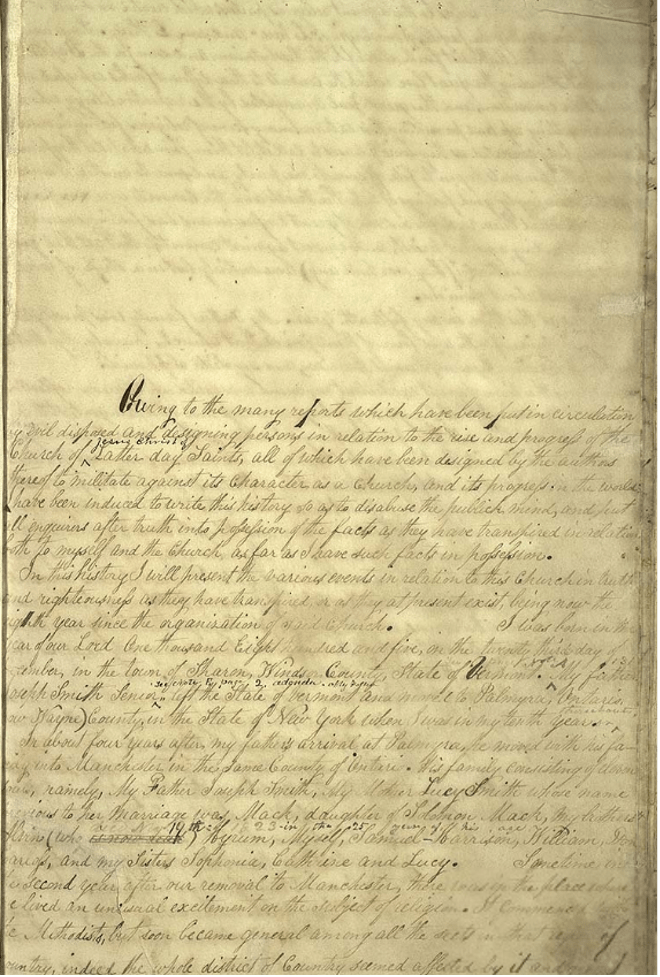 Owing to the many reports which have been put in circulation
by evil disposed and designing persons in relation to the rise and progress of the
Jesus Christ of
Church of Latter day Saints, all of which have been designed by the authors
thereof to militate against its character as a Church, and its progress in the world
have been induced to write this history so as to disabuse the publick mind, and put
all enquirers after truth into possession of the facts as they have transpired in relation
both to myself and the Church, as far as I have such facts in possession.
In this history I will present the various events in relation to this Church in truth
and righteousness as they have transpired, or as they at present exist, being now the
eighth year since the organization of said Church. I was born in the
year of our Lord One thousand Eight hundred and five, on the twenty third day of
cember, in the town of Sharon, Windsor County, State of Vermont. My father
Joseph Smith Senior left the State of Vermont and moved to Palmyra, Ontario,
now Wayne) County, in the State of New York when I was in my tenth year.
In about four years after my father's arrival at Palmyra, he moved with his fa-
mily into Manchester in the same County of Ontario. His family consisting of eleven
souls, namely, My Father Joseph Smith, My Mother Lucy Smith whose name
previous to her marriage was Mack, daughter of Solomon Mack, My brothers
Alvin (who 19th 1823 in the 25 year of his age) Hyrum, Myself, Samuel-Harrison, William, Don
Carlos, and my Sisters Sophronia, Catharine and Lucy. Sometime in
second year after our removal to Manchester, there was in the place where
we lived an unusual excitement on the subject of religion. It commenced
the Methodists, but soon became general among all the sects in that region of
country, indeed the whole district of Country seemed affected by it